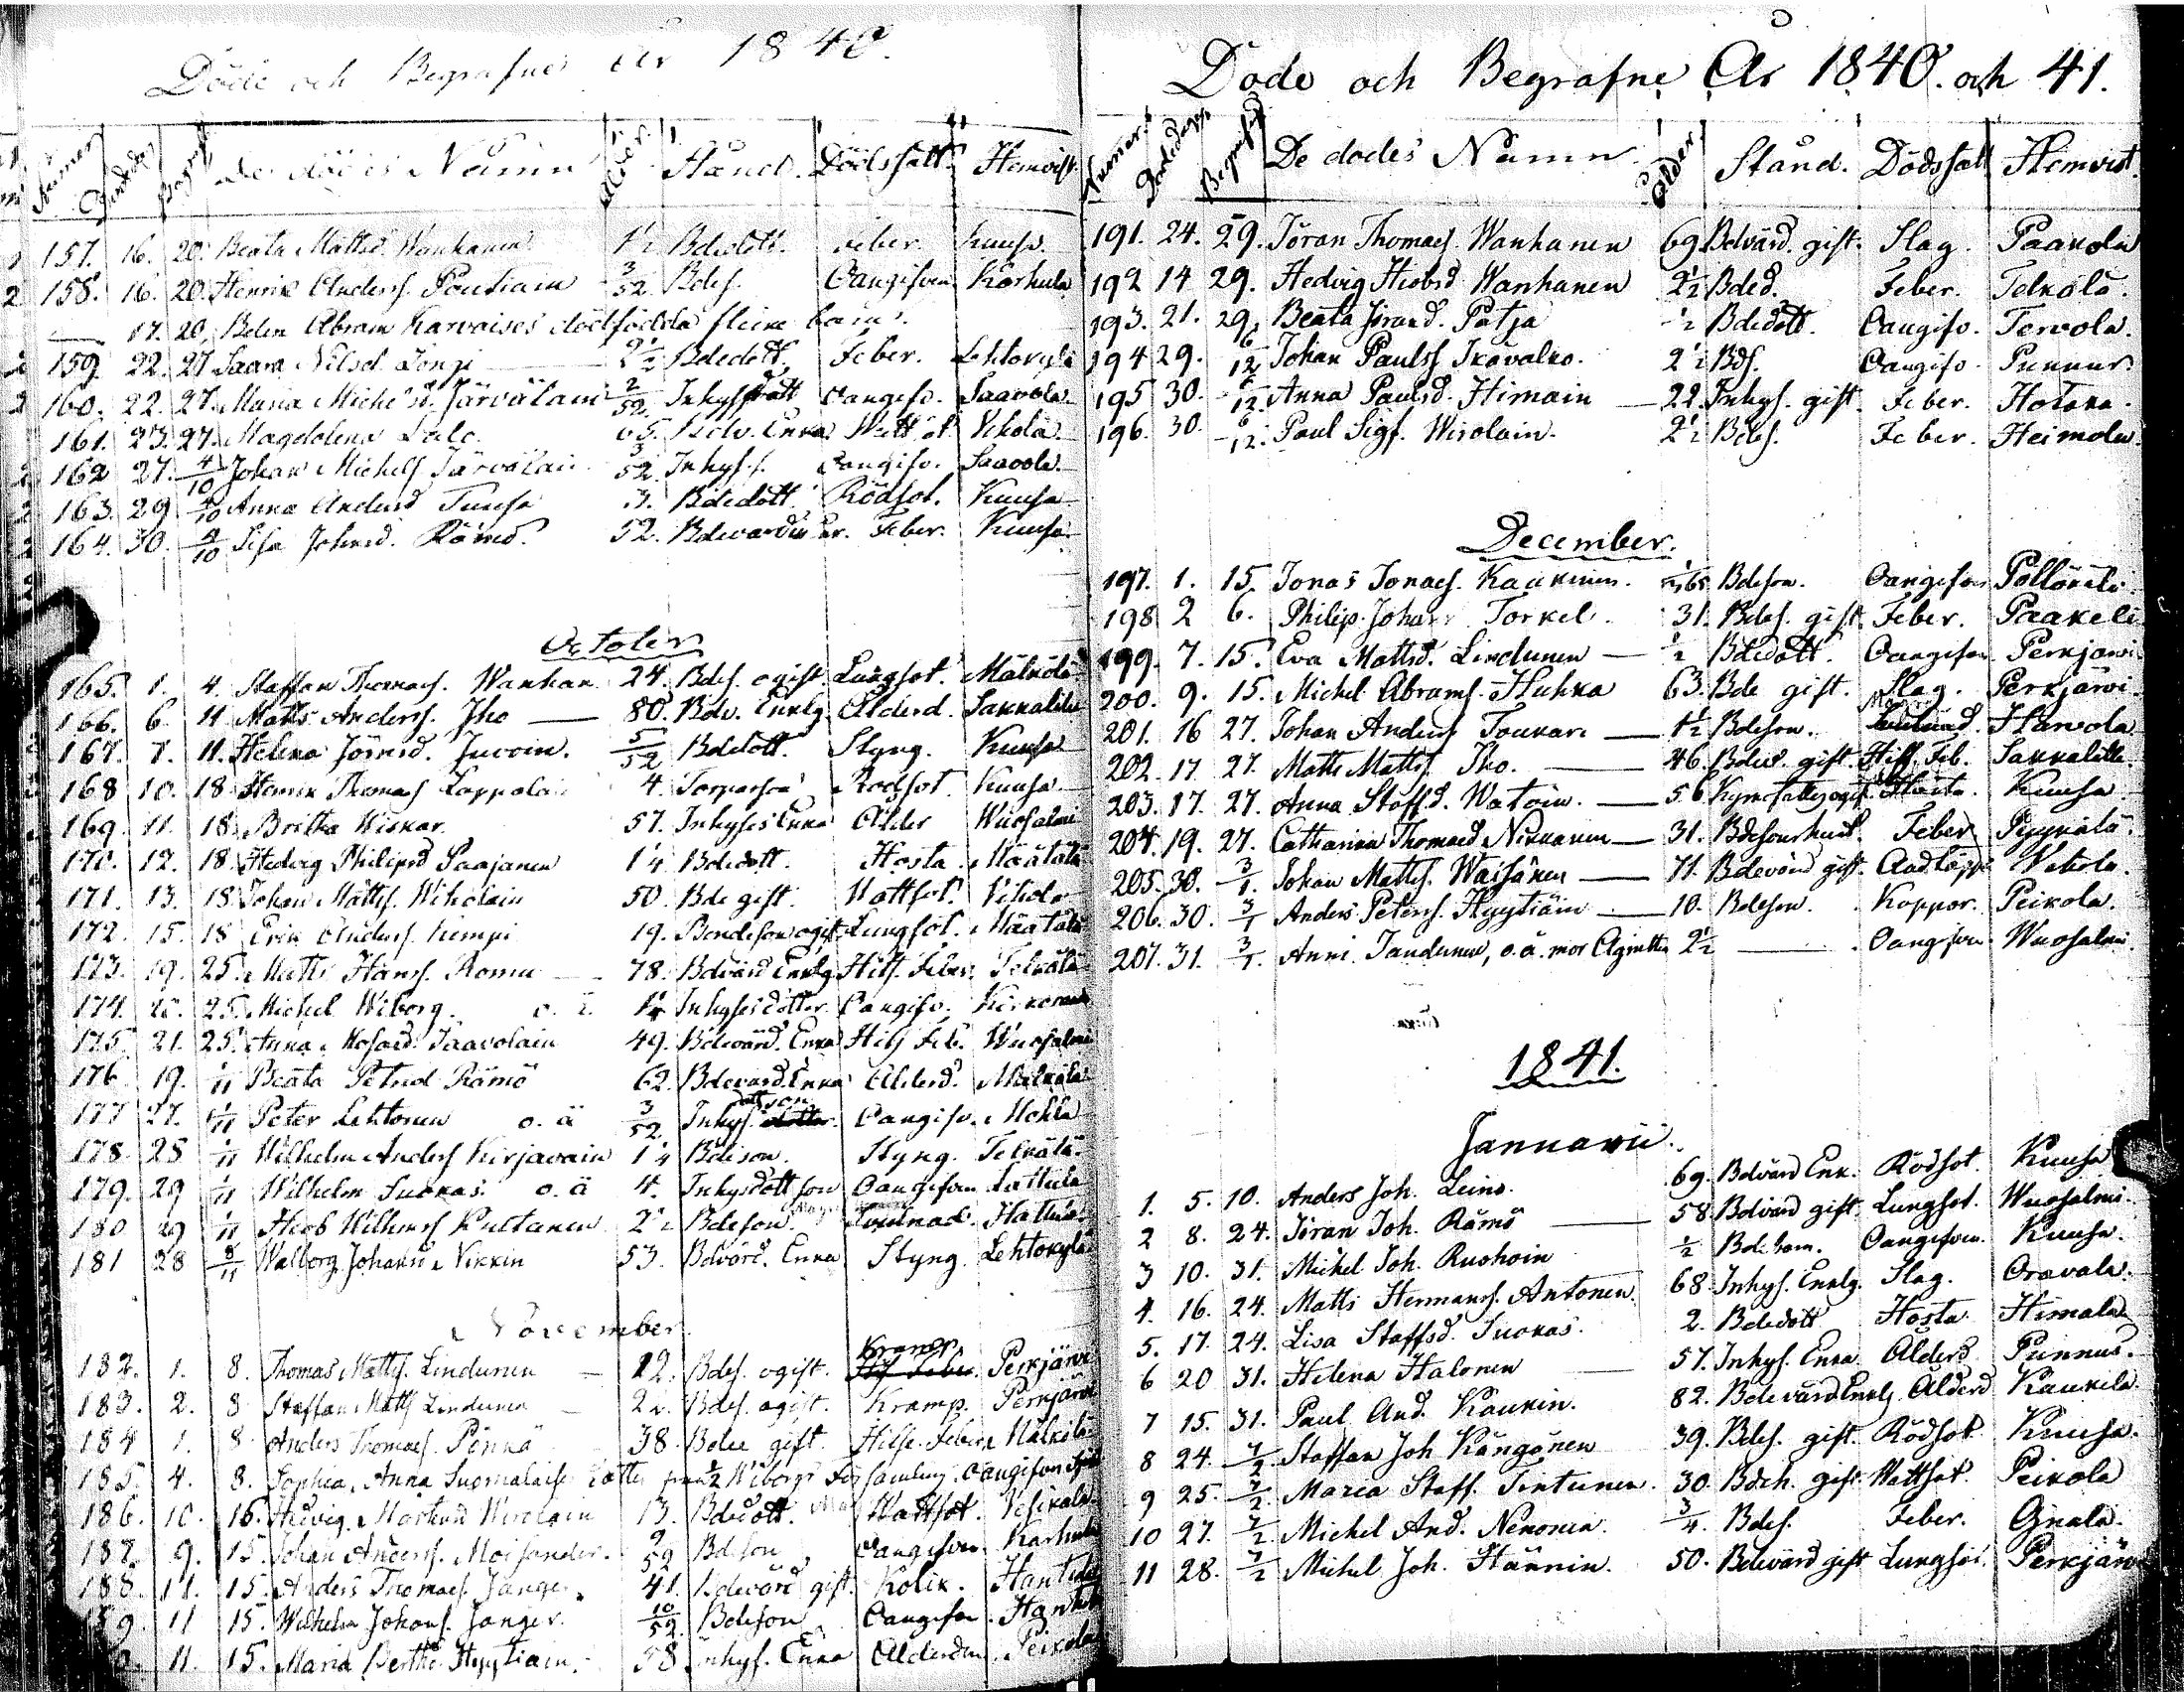 Döde och Begrafne År 1840.
Numer Dödedag Begrafn De dödes Namn Ålder Stånd. Dödssätt Hemvist
157. 16. 20. Beata Mattsd. Wanhanen 1½ Bdedott. Feber. Kuusa
158. 16. 20. Henrik Anders. Poutiain 3/52 Bdes. Oangifven Karhula
17. 20. Bden Abram Karvaises dödfödda flicke barn.
159. 22. 27. Saara Nilsd. Longi 2½ Bdedott. Feber. Lehtokylä
160. 22. 27. Maria Michelsd. Järväläin 2/52 Inhys dott Oangifv. Saavola
161. 23. 27. Magdalena 65. Bdv. Enka Wattsot Vekola
162 27. 4/10 Johan Michels. Järväläin 3/52 Inhys. s. Oangifv. Saavola
163. 29 4/10 Anna Andersd Tuusa 3. Bdedott. Rödsot. Kuusa
164. 30. 4/10 Lisa Johansd. Rämö. 52. Bdevärdin Feber. Kuusa
October
165. 1. 4. Staffan Thomas. Wanhan 24. Bdes. ogift. Lungsot. Mälkölä
166. 6. 11. Matts Anders. Iho 80. Bdv. Enklg. Ålderd. Sakkalila
167. 7. 11. Helena Jöransd. Juvoin. 5/52 Bdedott. Styng. Kuusa
168 10. 18. Henrik Thomas Lappalai 4. Torparson Rödsot. Kuusa
169. 11. 18. Britha Wiskar. 57. Inhyses Enka Ålder Wuosalmi
170. 12. 18. Hedvig Philipsd Paajanen 1¼ Bdedott. Hosta. Määtälä
171. 13. 18. Johan Matts. Wiholain 50. Bde gift. Wattsot.
172. 15. 18 Erik Anders. Kimpi 19. Bondeson ogift. Lungsot. Määtälä
173. 19. 25. Matts Hans. Romu 78. Bdvärd Enklg. Hits. Feber. Telkälä
174. 25. Michel Wiborg. o. ä. 1¼ Inhyses dotter Oangifv.
175. 21. 25. Anna Mosasd. Taavolain 49. Bdevärd. Enka Hits Feb. Wuosalmi
176 19. 1/11 Beata Petrsd Rämö 62. Bdevärd. Enka Ålderd. Mälkölä
177 27. 1/11 Peter Lehtonen o. ä 3/52 Inhys. dott son Oangifv. Mohla
178 25 1/11 Wilhelm Anders Kirjavain 1¼ Bdeson. Styng. Telkälä
179. 29 1/11 Wilhelm Suokas. o. ä 4. Inhysdott son Oangifven Lattula
180 29 1/11 Hiob Wilhms Kultanen 2½ Bdeson. Tvinad. Hattula
181 28 8/11 Walborg Johansd. Nikkin 53. Bdvärd. Enka Styng. Lehtokylä
November.
182. 1. 8. Thomas Matts. Lindunen 12. Bdes. ogift. Kramp Hits Feber. Perkjärvi
183. 2. 8 Staffan Matts Lindunen 2½. Bdes. ogift. Kramp. Perkjärvi
184 1. 8. Anders Thomas. Pönnä 38. Bde gift. Hitse. Feber. Mälkölä
185. 4. 8. Sophia, Anna Suomalaises dotter från ½ Wiborgs Församling. Oangifven
186. 10. 16. Hedvig Mårtensd Wirolain 13. Bdedott. Wattsot. Vesikala
187. 9. 15. Johan Anders. Moisander. 9/52 Bdeson Oangifven Karhula
188. 11. 15. Anders Thomas. Janger 41. Bdevärd gift. Kolik. Hantula
189. 11 15. Wilhelm Johans. Janger. 10/52 Bdeson Oangifven
11. 15. Maria Berthd Hyytiäin. 58 Inhys. Enka Ålderdom. Peikola
Döde och Begrafne År 1840. och 41.
Numer Dödedag Begrafn De dödes Namn. Ålder Stånd. Dödssätt Hemvist.
191. 24. 29. Jöran Thomas. Wanhanen 69. Bdvärd. gift. Slag. Paakola
192 14 29. Hedvig Hiobsd Wanhanen 2½ Bded. Feber. Telkölä.
193. 21. 29. Beata Jörand. Patja ½ Bdedott. Oangifv. Tervola.
194 29. 6/12 Johan Pauls. Ikävalko. 2½ Bds. Oangifv. Punnus.
195 30. 6/12. Anna Paulsd. Himain 22. Inhys. gift. Feber. Hotaka.
196. 30. 6/12. Paul Sigf. Wirolain. 2½ Bdes. Feber. Heimola.
December.
197. 1. 15. Jonas Jonas. Kaukinen. Bdeson. Oangifven Pöllökälä
198 2 6. Philip Johan Torkel. 31. Bdes. gift. Feber. Paakeli
199. 7. 15. Eva Mattsd. Lindunen ½ Bdedott. Oangifven Perkjärvi
200. 9. 15. Michel Abrams. Huhka 63. Bde gift. Slag. Perkjärvi.
201. 16 27. Johan Anders Toukari 1½ Bdeson. Harvola
202. 17. 27. Matts Matts. Iho. 46. Bdev. gift. Hits. Feb. Sakkalila.
203. 17. 27. Anna Staffsd. Watain. 56 Hosta. Kuusa
204. 19. 27. Catharina Thomasd Nikkanen 31. Bdesonshust. Feber Pyykälä.
205. 30. 3/1. Johan Matts. Waisänen 71. Bdevärd gift. Wekola.
206. 30. 3/1 Anders Peters. Hyytiäin 10. Bdeson. Koppor. Peikola.
207. 31. 3/1. Anni Tandunen, o. ä. mor Agneta 2½ Oangifven Wuosalmi
1841.
Januarii.
1. 5. 10. Anders Joh. Leino. 69. Bdvärd Enk. Rödsot. Kuusa
2 8. 24. Jöran Joh. Rämö 58. Bdvärd gift. Lungsot. Wuosalmi.
3 10. 31. Michel Joh. Ruohoin ½ Bdebarn. Oangifven. Kuusa.
4. 16. 24. Matts Hermans. Antonen. 68. Inhys. Enklg. Slag. Oravala.
5. 17. 24. Lisa Staffsd. Suokas. 2. Bdedott Hosta Himala
6 20 31. Helena Halonen 57. Inhys. Enka Ålderd. Punnus.
7 15. 31. Paul And. Kaukin. 82. Bdevärd Enklg. Ålderd Kaukila.
8 24. 7/2 Staffan Joh Kängänen 39. Bdes. gift. Rödsot Kuusa.
9 25. 7/2. Maria Staff. Tintunen. 30. Bdeh. gift. Wattsot. Peikola
10 27. 7/2 Michel And. Nenonen. 3/4. Bdes. Feber. Gnala.
11 28. 7/2 Michel Joh. Hännin. 50. Bdevärd gift Lungsot. Perkjärvi